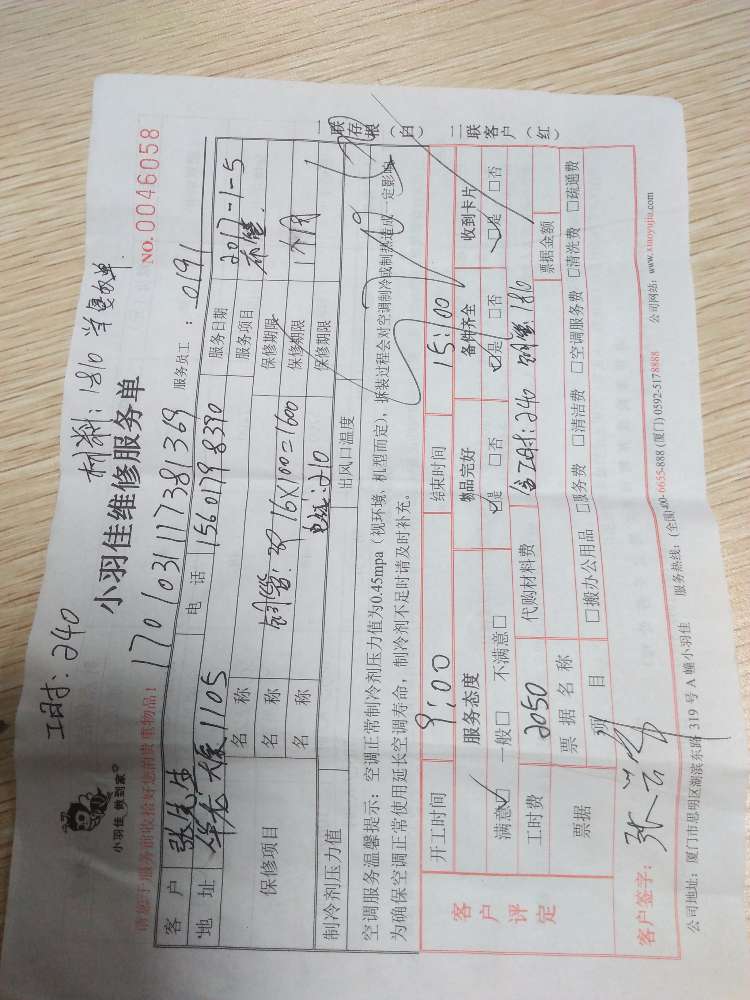 工时:240 材料:1810 学复收单
小羽佳 做到家
小羽佳维修服务单
NO.0046058
请您于服务前收拾好您的贵重物品!
170103111738 1369
服务员工: 0191
客户 张先生 电话 15601798390 服务日期 2017-1-5
地址 华龙大厦1105 服务项目
保修项目
名称 保修期限
名称 铜管: 16X100=1600 保修期限 1个月
名称 电线:210 保修期限
制冷剂压力值 出风口温度
空调服务温馨提示:空调正常制冷剂压力值为0.45mpa(视环境、机型而定),拆装过程会对空调制冷或制热造成一定影响
为确保空调正常使用延长空调寿命,制冷剂不足时请及时补充。
客户评定
开工时间 9:00 结束时间 15:00
服务态度 物品完好 备件齐全 收到卡片
满意☑ 一般□ 不满意□ ☑是 □否 ☑是 □否 ☑是 □否
工时费 2050 代购材料费 含工时:240 铜管1810
票据 票据名称 票据金额
项目 □搬办公用品 □服务费 □清洁费 □空调服务费 □清洗费 □疏通费
客户签字:
公司地址:厦门市思明区湖滨东路319号A幢小羽佳 服务热线:(全国)400-6655-888 (厦门) 0592-5178888 公司网站:www.xiaoyujia.com
一联存根(白) 二联客户(红)